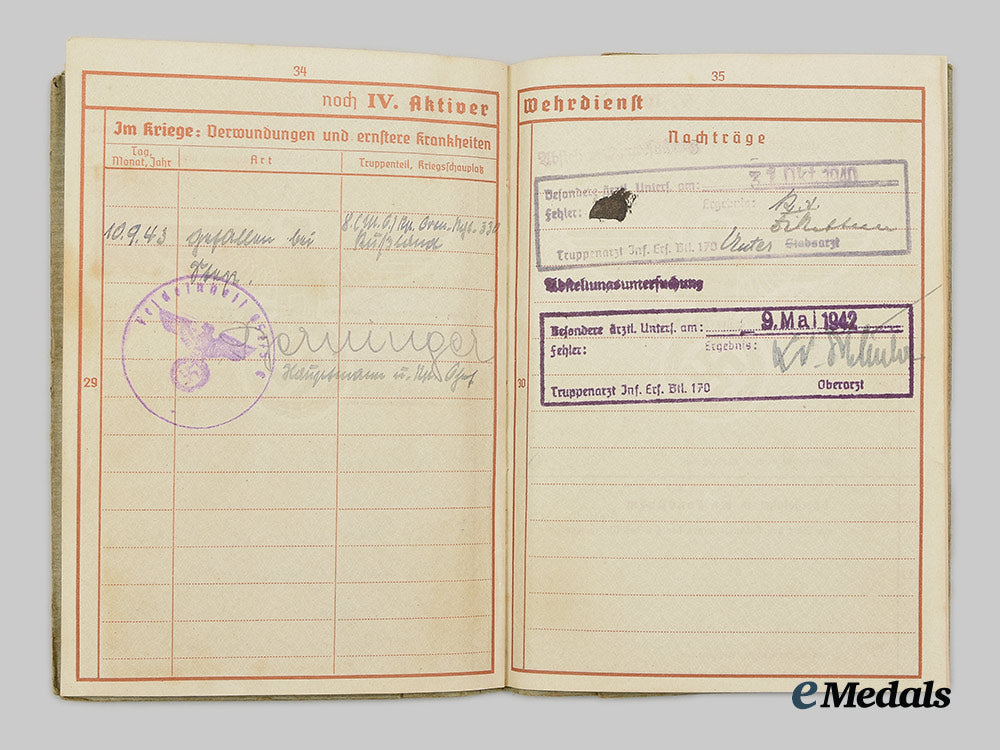 34
noch IV. Aktiver
Im Kriege: Verwundungen und ernstere Krankheiten
Tag, Monat, Jahr
Art
Truppenteil, Kriegsschauplatz
10.9.43
gefallen bei
Rußland
Hauptmann u.
29
35
Wehrdienst
Nachträge
Besondere ärztl. Unters. am: 31. Okt. 1940
Fehler: Ergebnis:
Truppenarzt Inf. Ers. Btl. 170 Unter Stabsarzt
Abstellungsuntersuchung
Besondere ärztl. Unters. am: 9. Mai 1942
Fehler: Ergebnis:
Truppenarzt Inf. Ers. Btl. 170 Oberarzt
30
eMedals